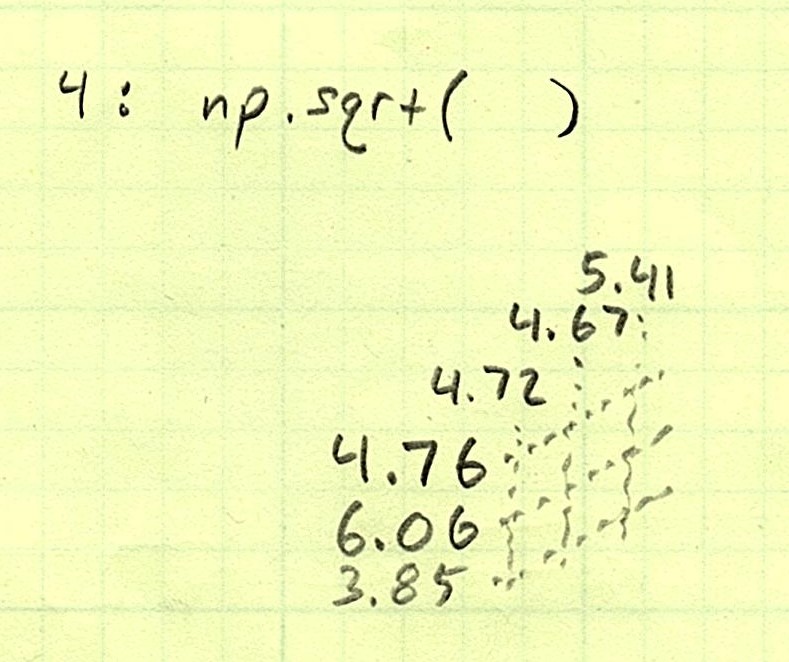 4: np.sqrt( )
5.41
4.67
4.72
4.76
6.06
3.85